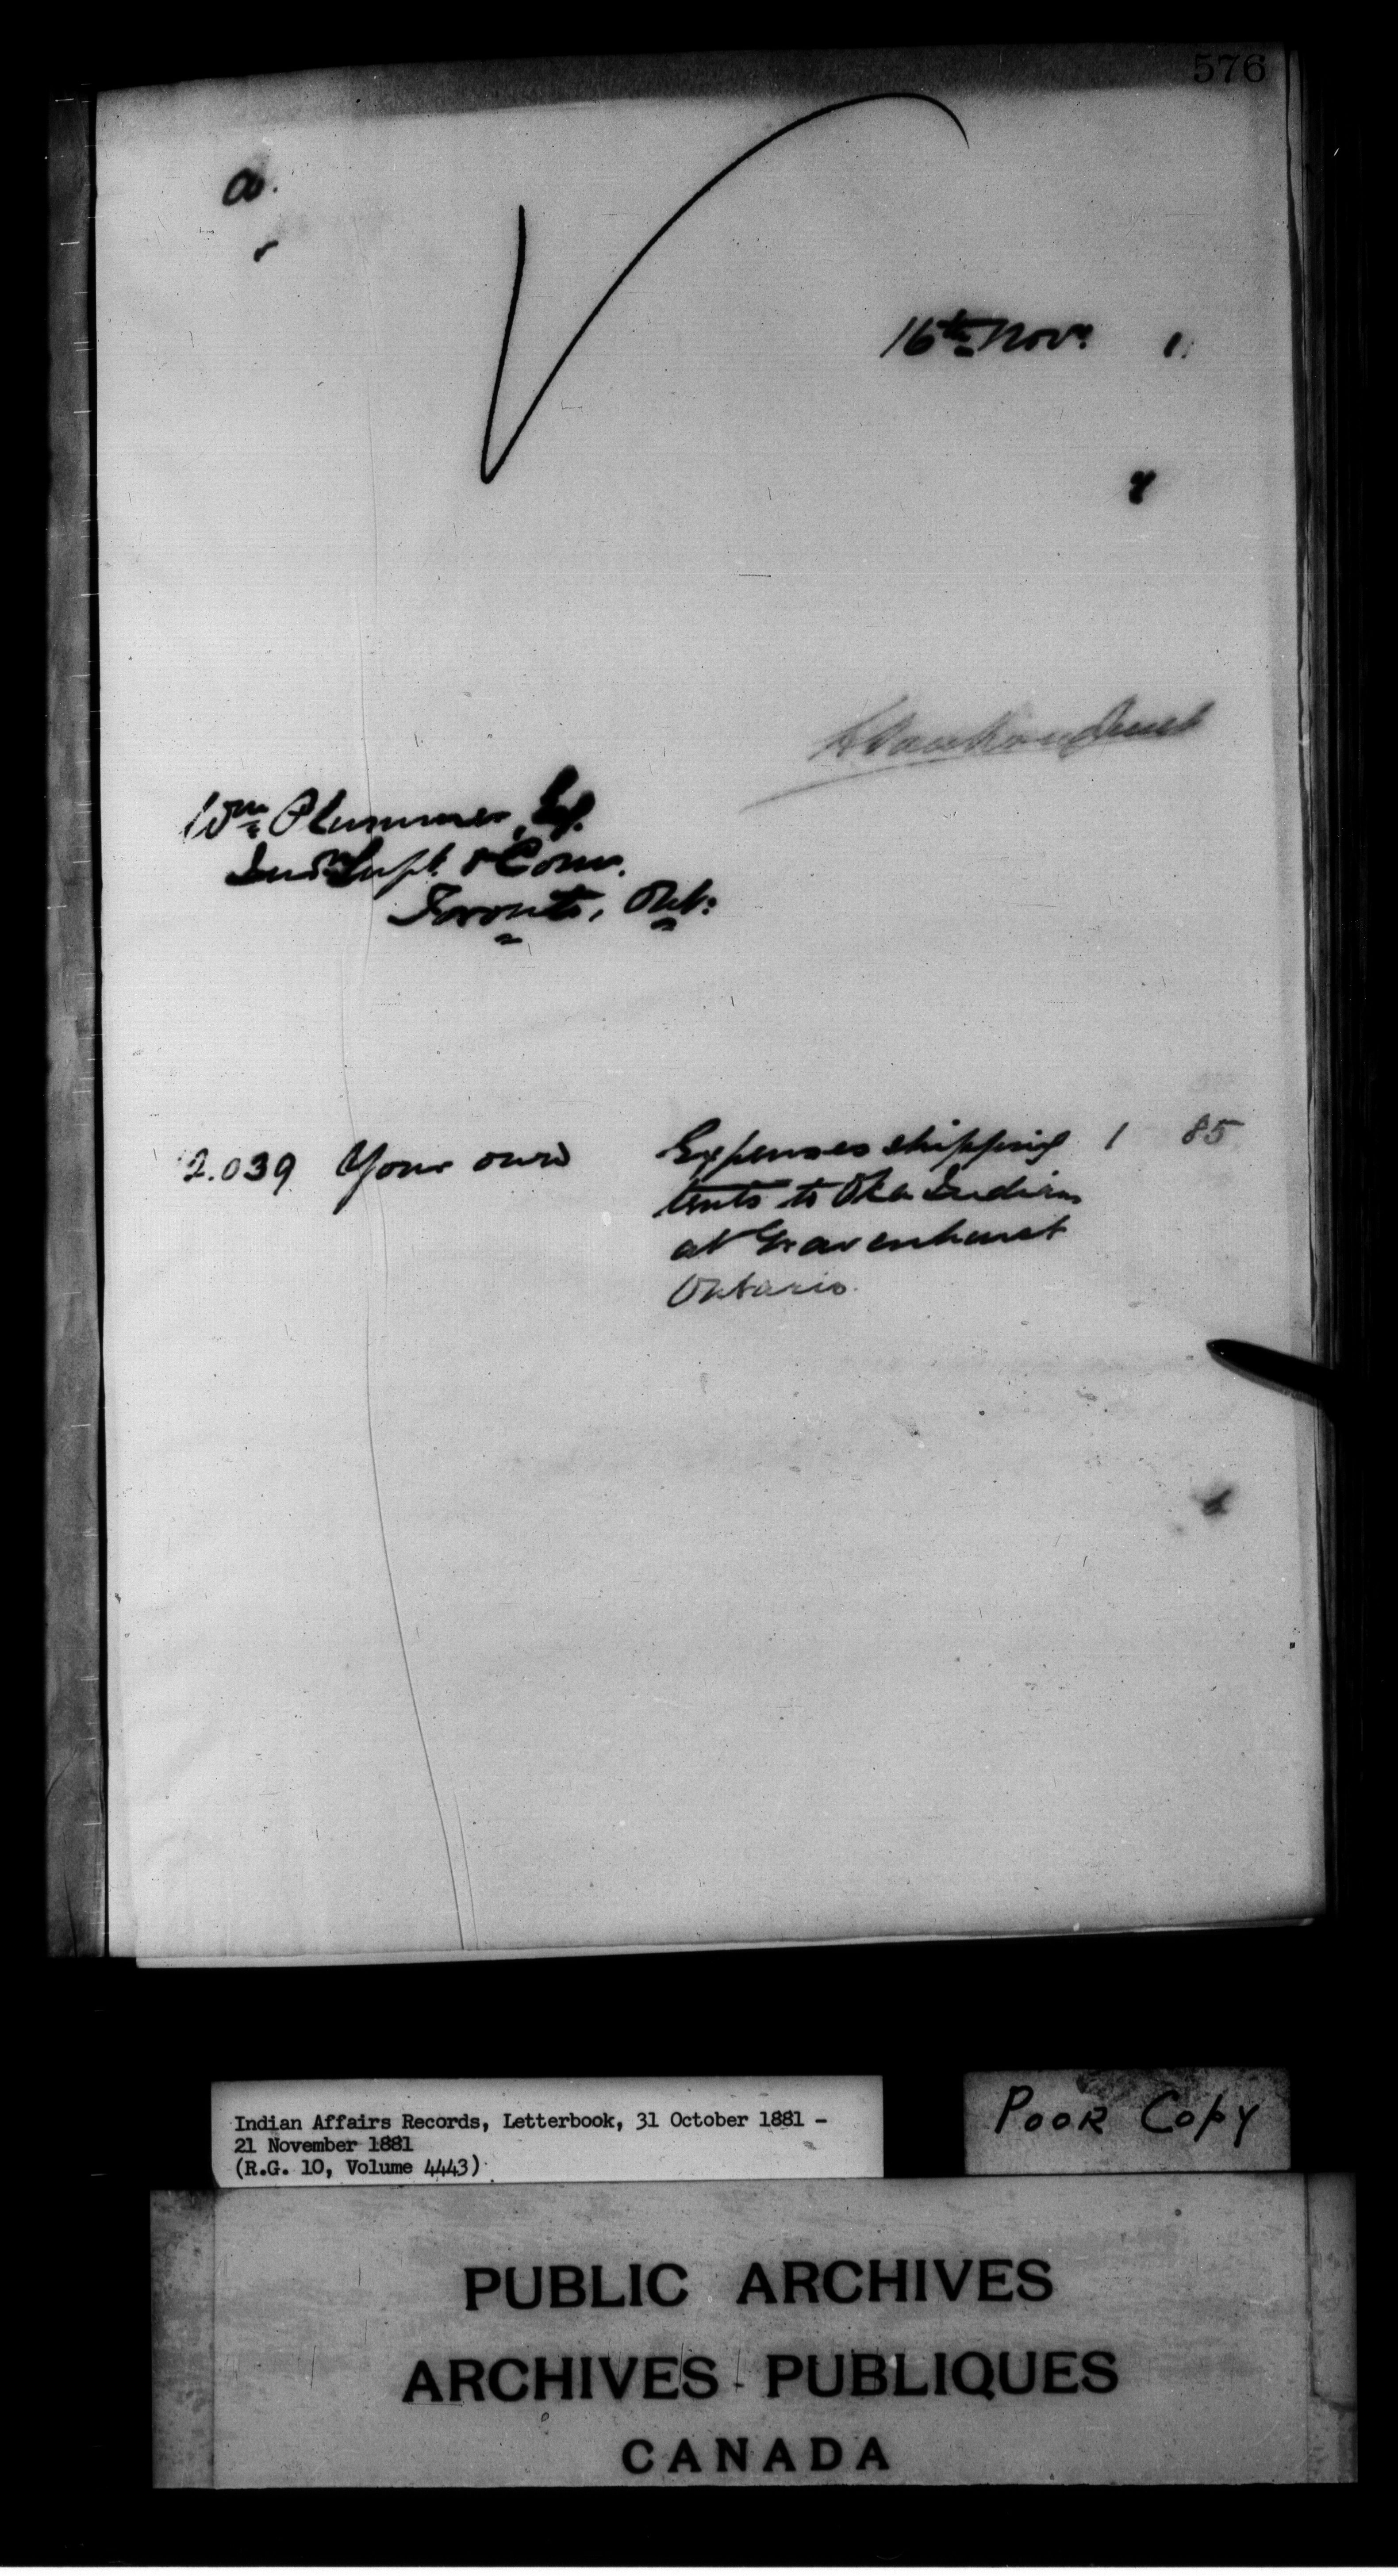 576
a.
16th Nov. 1
L Vankoughnet
Wm Plummer, Esq.
Ind. Supt. & Com.
Toronto, Ont:
2.039 Your own Expenses shipping 1 85
tents to Oka Indians
at Gravenhurst
Ontario.
Indian Affairs Records, Letterbook, 31 October 1881 -
21 November 1881
(R.G. 10, Volume 4443)
POOR COPY
PUBLIC ARCHIVES
ARCHIVES PUBLIQUES
CANADA